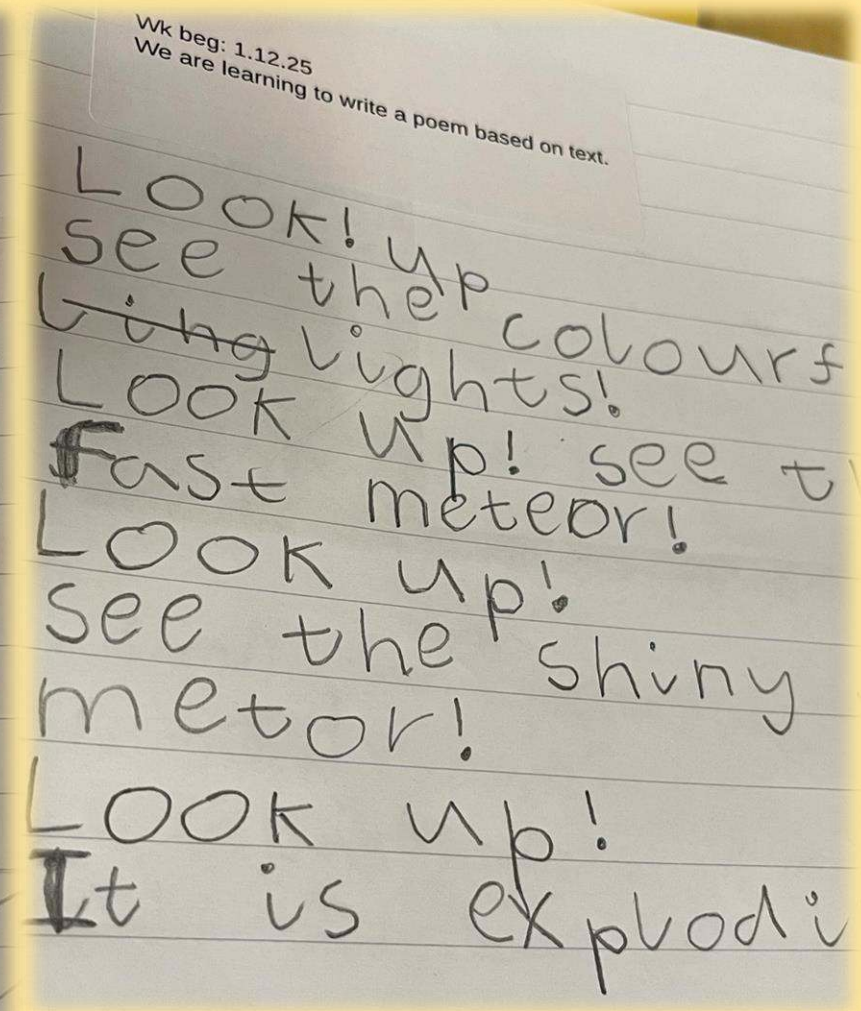 Wk beg: 1.12.25
We are learning to write a poem based on text.
LOOK! up
see the colourf
lights!
LOOK up! see t
Fast meteor!
LOOK up!
see the shiny
metor!
LOOK up!
It is explodi